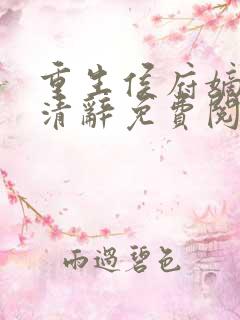 重生侯府嫡
清辭免費閱
雨過碧色